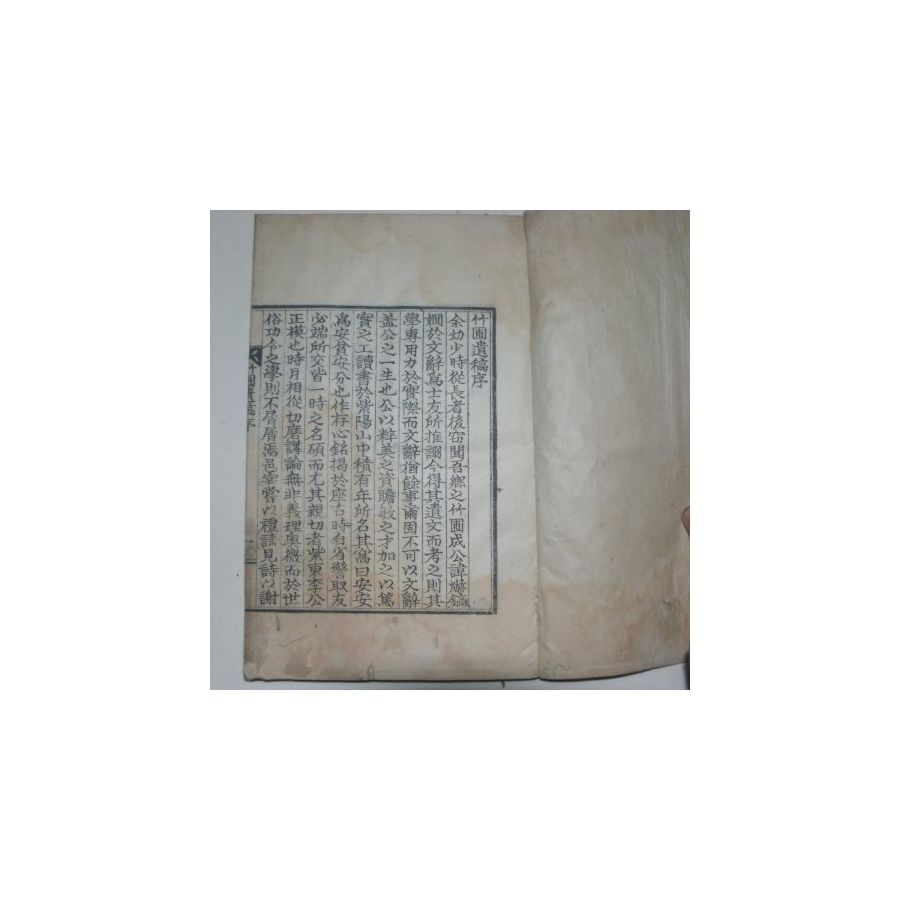 竹圃遺稿序
余幼少時從長者後窃聞吾鄉之竹圃成公諱鎬
嫺於文辭爲士友所推詡今得其遺文而考之則其
學專用力於實際而文辭猶餘事爾固不可以文辭
盖公之一生也公以粹美之資贍敏之才加之以篤
實之工讀書於紫陽山中積有年所名其寓曰安安
寓安貧安分也作存心銘揭於座右時自省警取友
必端所交皆一時之名碩而尤其親切者紫東李公
正模也時月相從切磨講論無非義理奧微而於世
俗功令之學則不屑屑焉邑宰嘗以禮請見詩以謝
竹圃遺稿序